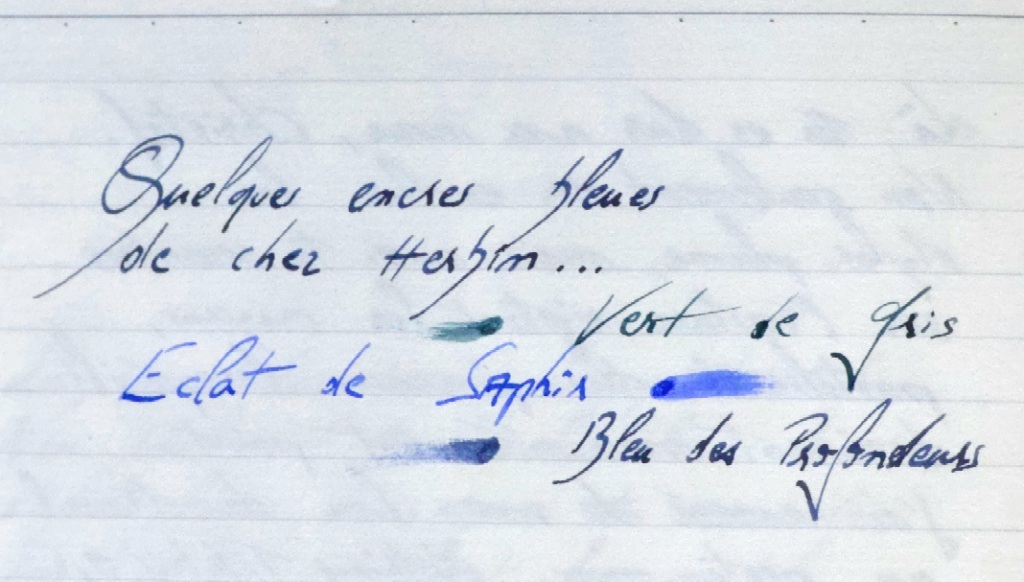 Quelques encres bleues
de chez Herbin...
Vert de Gris
Eclat de Saphir
Bleu des Profondeurs